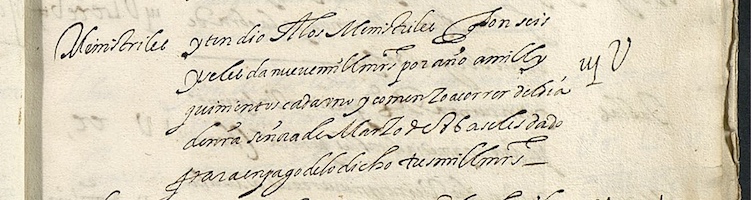 Menistriles yten dio A los Menistriles q son seis
y se les da nueve mill mrs por año a mill y
quinientos cada vno y comenzo a correr del dia
de nra señora de Marzo de a se les dado
para en pago de lo dicho tres mill mrs
iij U